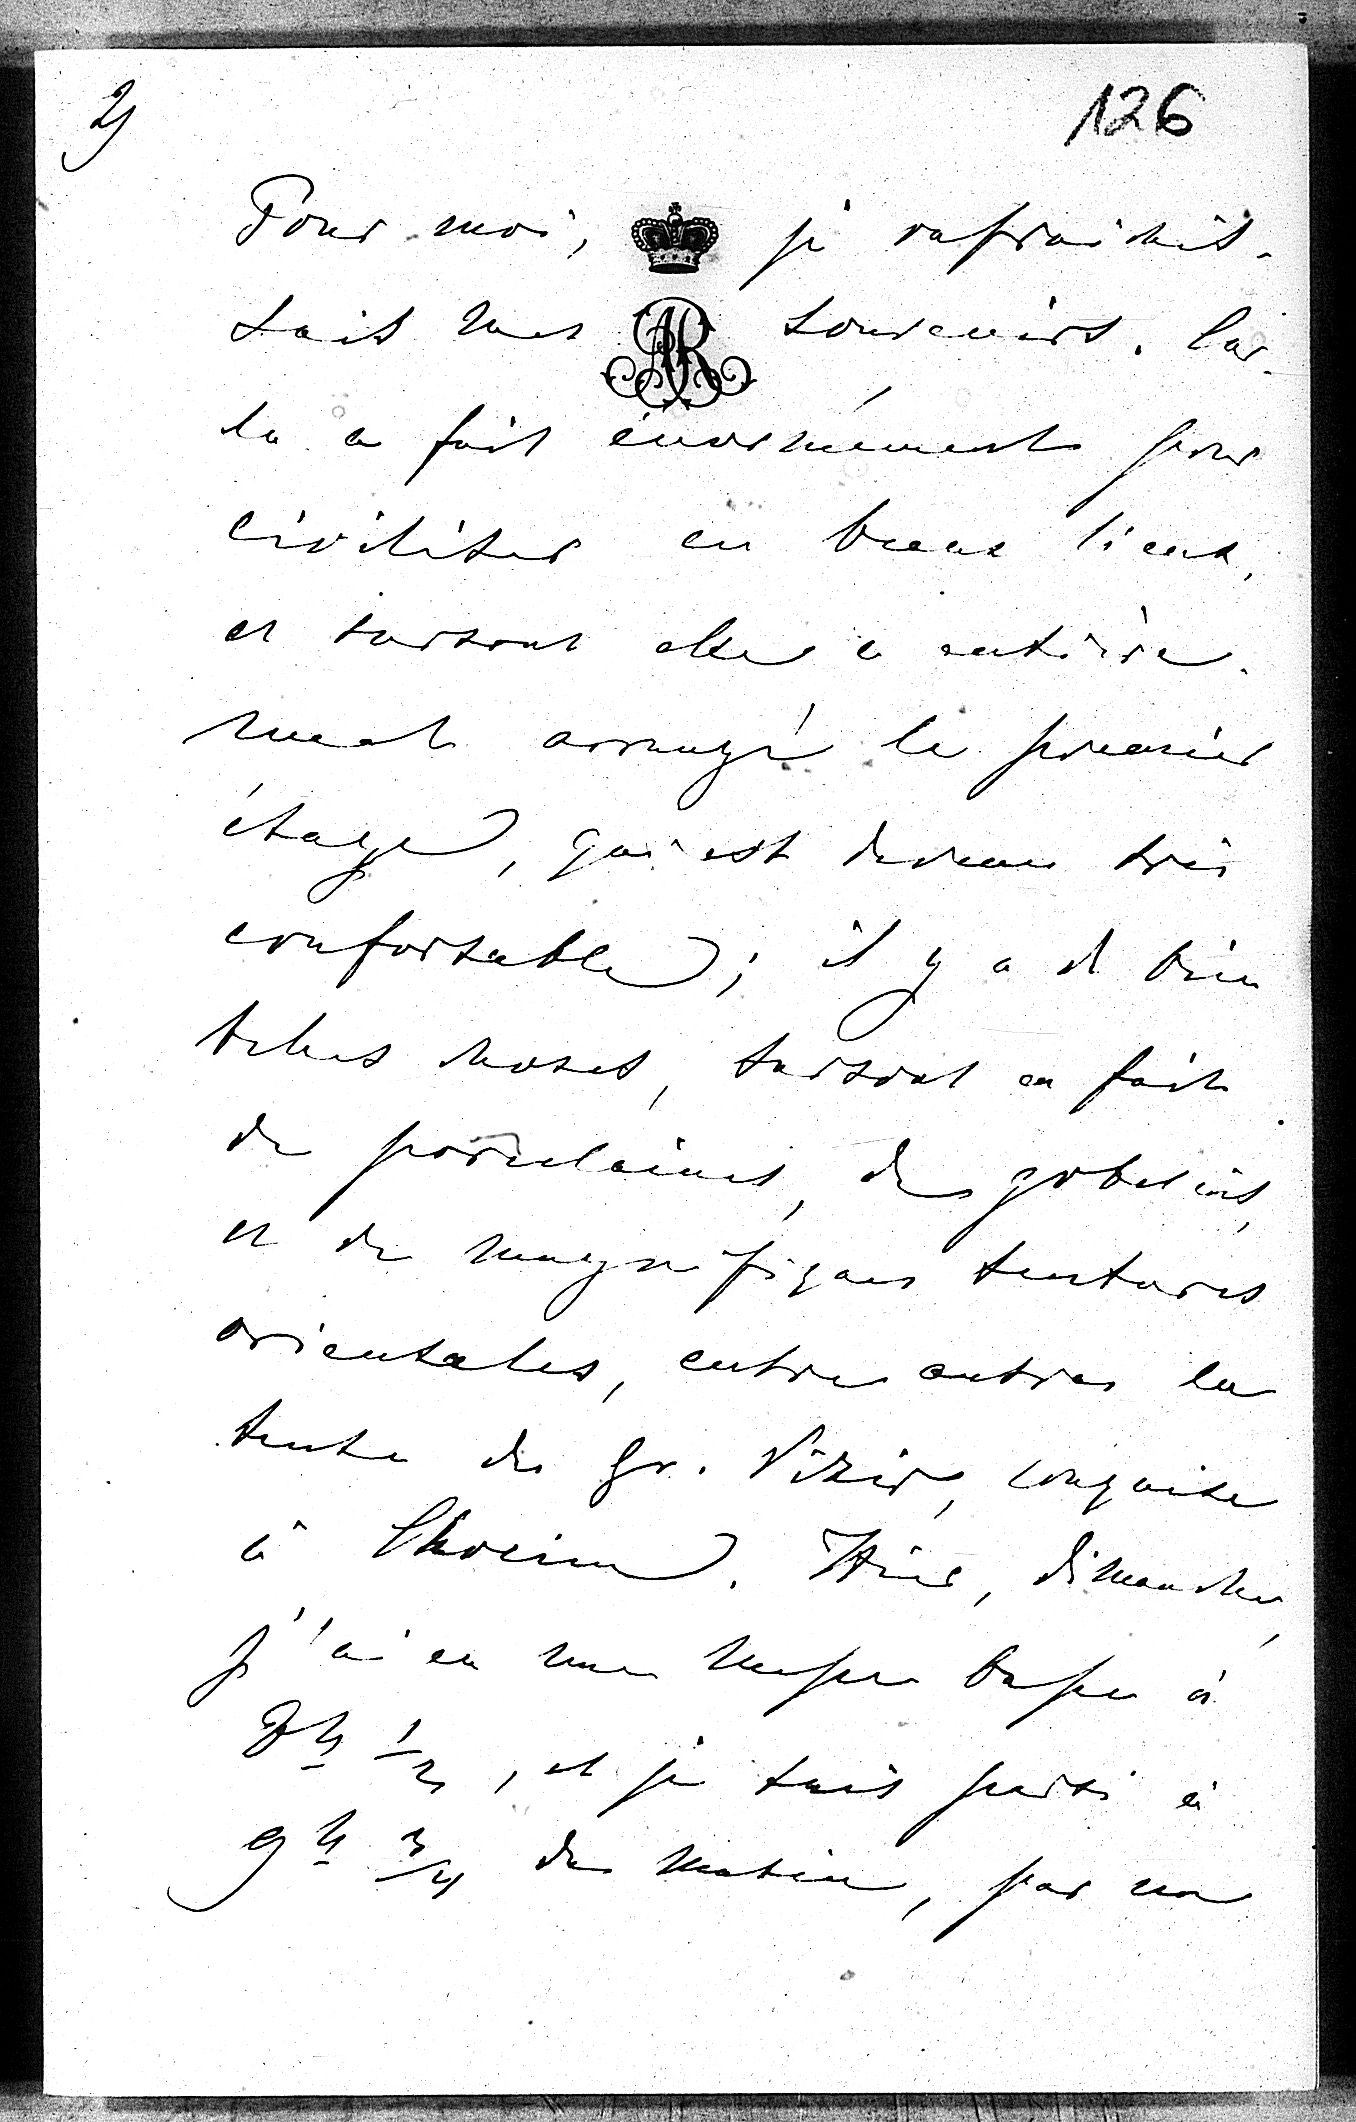 2)
126
Pour moi, je rafraichis-
sais mes souvenirs. Car-
la a fait énormément pour
civiliser ce beau lieux,
et surtout elle a entière-
ment arrangé le premier
étage, qui est devenu très
confortable; il y a de bien
belles choses, surtout en fait
de porcelaines, de gobelins,
et de magnifiques tentures
orientales, entre autres la
tente du Gr. Vizir, conquise
à Chocim. Hier, dimanche,
j'ai eu une messe basse à
8h 1/2, et je suis parti à
9h 3/4 du matin, par un